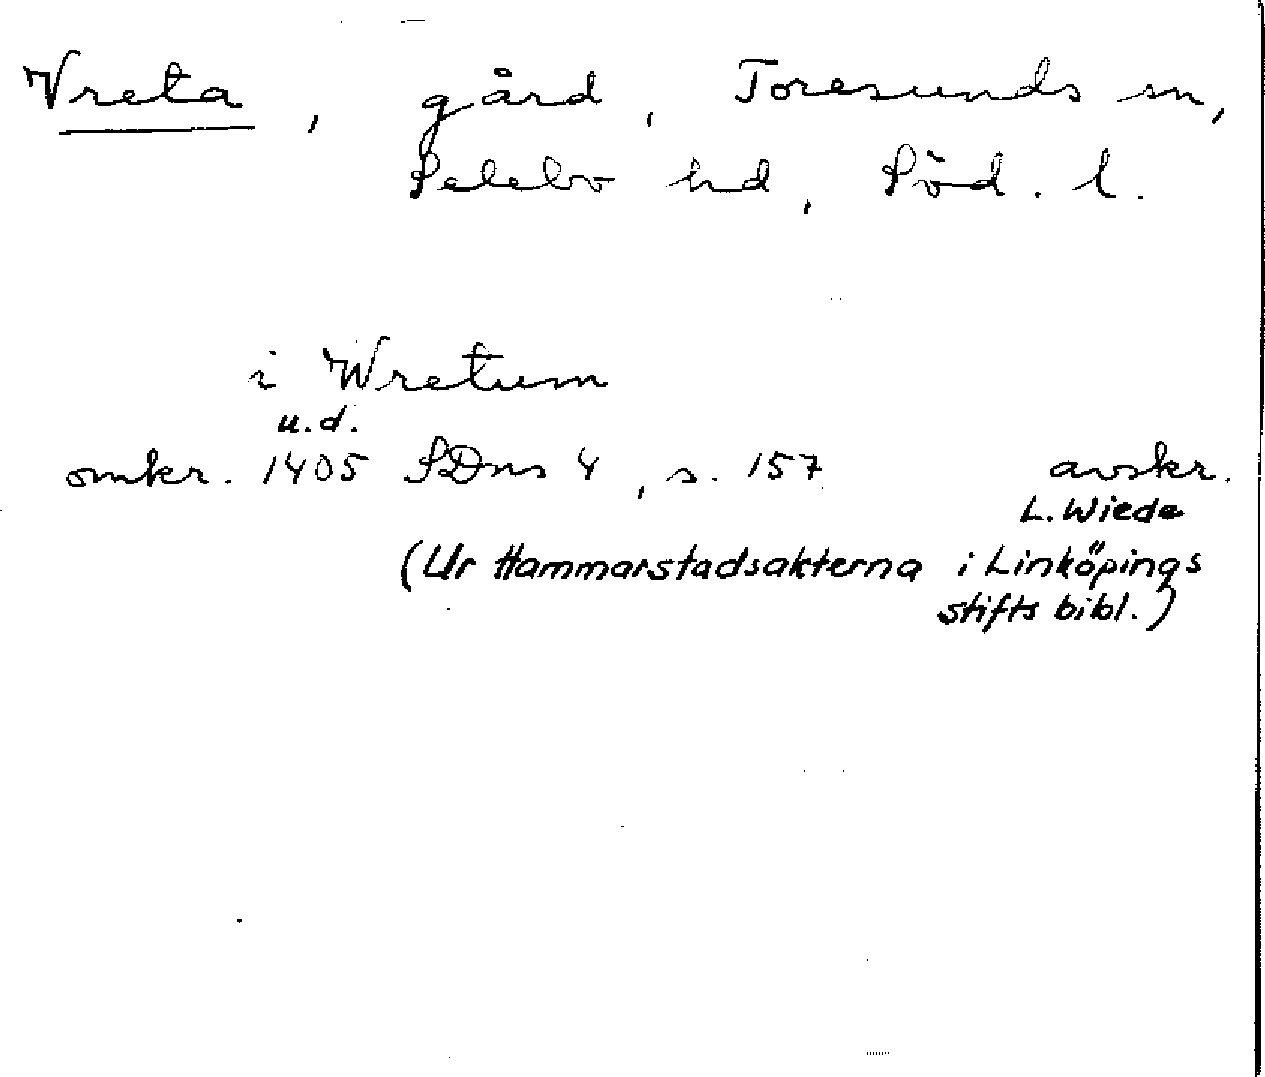 Vreta, gård, Toresunds sn,
Selebo hd, Söd. l.
i Wretum
u.d.
omkr. 1405 SDns 4, s. 157 avskr.
L. Wiede
(Ur Hammarstadsakterna i Linköpings
stifts bibl.)